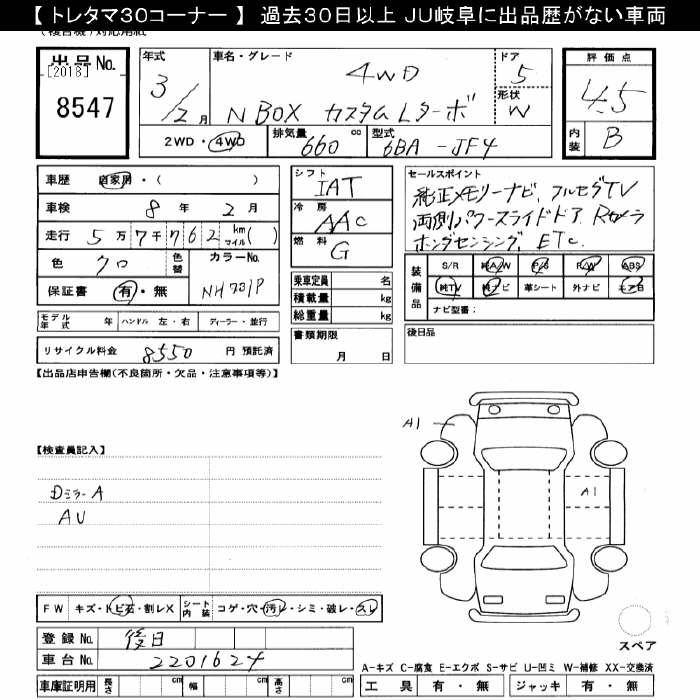 【 トレタマ30コーナー 】 過去30日以上 JU岐阜に出品歴がない車両
(複合機)対応用紙
出品No.
[2018]
8547
年式
3/2月
車名・グレード
4WD
N BOX カスタム Lターボ
ドア
5
形状
W
評価点
4.5
内装
B
2WD・4WD
排気量
660 cc
型式
6BA-JF4
車歴 自家用・( )
車検 8年 2月
走行 5万7千762 km マイル( )
色 クロ
色替
カラーNo.
NH731P
保証書 有・無
シフト
IAT
冷房
AAC
燃料
G
乗車定員 名
積載量 kg
総重量 kg
セールスポイント
純正メモリーナビ、フルセグTV
両側パワースライドドア、Rカメラ
ホンダセンシング、ETC.
装備品
S/R 純A/W P/S P/W ABS
純TV 純ナビ 革シート 外ナビ エアB
ナビ型番:
モデル年式 年 ハンドル 左・右 ディーラー・並行
書類期限
月 日
後日品
リサイクル料金 8550 円 預託済
【出品店申告欄(不良箇所・欠品・注意事項等)】
A1
【検査員記入】
DミラーA
AU
A1
FW キズ・トビ石・割レX シート内装 コゲ・穴・汚レ・シミ・破レ・スレ
登録No. 後日
車台No. 2201624
スペア
A-キズ C-腐食 E-エクボ S-サビ U-凹ミ W-補修 XX-交換済
車庫証明用 長さ cm 幅 cm 高さ cm
工具 有・無 ジャッキ 有・無